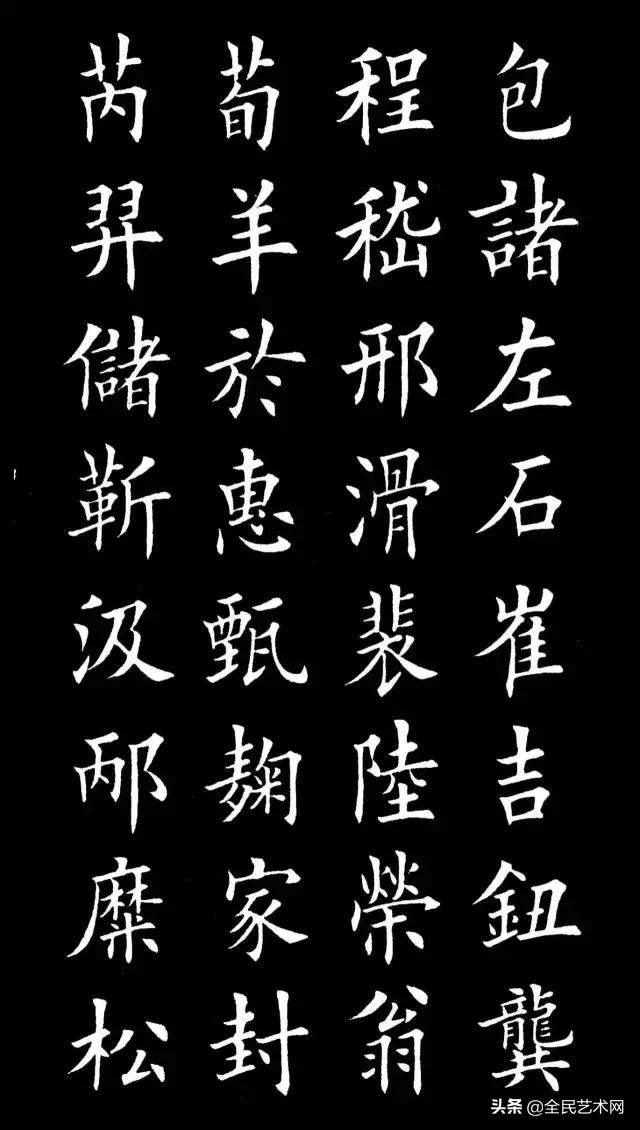 包諸左石崔吉鈕龔
程嵇邢滑裴陸榮翁
荀羊於惠甄麴家封
芮羿儲靳汲邴糜松
头条 @全民艺术网